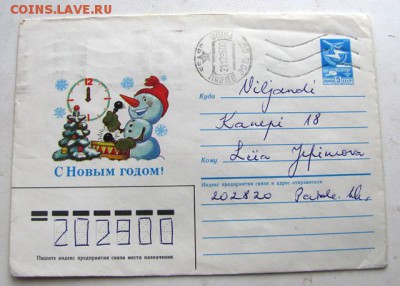 COINS.LAVE.RU
12
С Новым годом!
Куда Viljandi
Kanepi 18
Кому Liia
Индекс предприятия связи и адрес отправителя
202820
202900
Пишите индекс предприятия связи места назначения